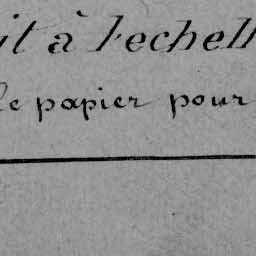 it à l'echell
le papier pour